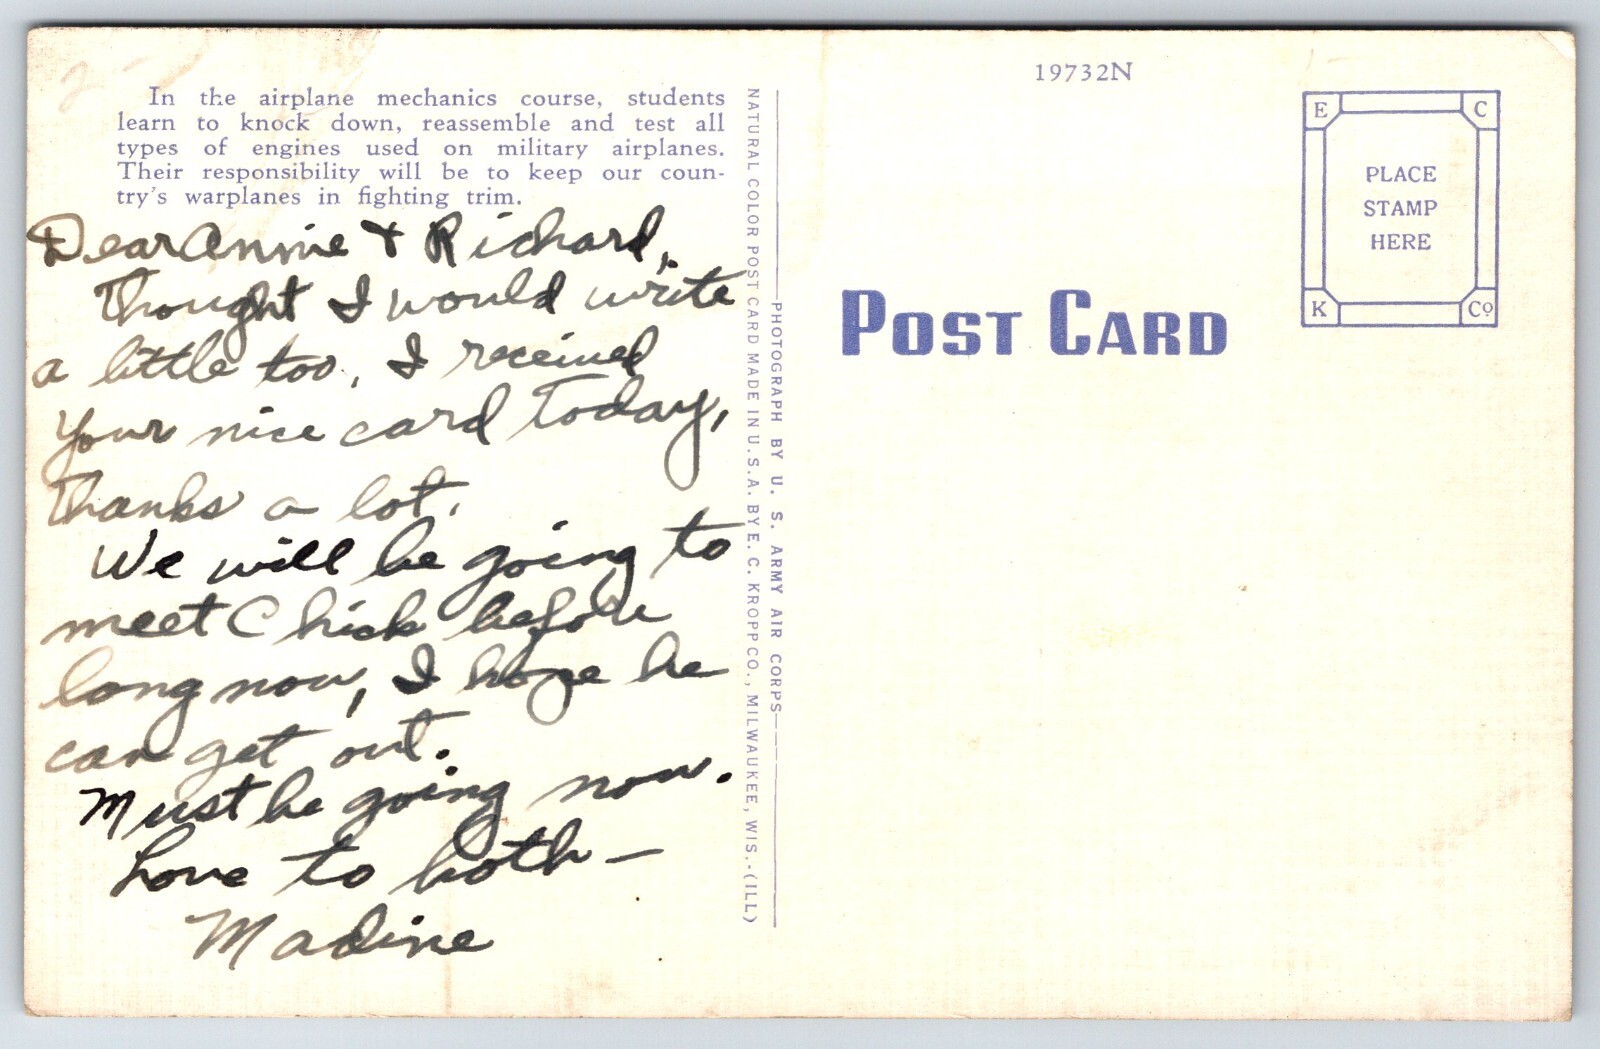 19732N
In the airplane mechanics course, students
learn to knock down, reassemble and test all
types of engines used on military airplanes.
Their responsibility will be to keep our coun-
try's warplanes in fighting trim.
Dear Annie & Richard,
Thought I would write
a little too, I received
your nice card today,
thanks a lot.
We will be going to
meet Chick before
long now, I hope he
can get out.
Must be going now.
Love to both—
Madine
NATURAL COLOR POST CARD MADE IN U.S.A. BY E. C. KROPP CO., MILWAUKEE, WIS.-(ILL)
PHOTOGRAPH BY U. S. ARMY AIR CORPS
POST CARD
E C
PLACE
STAMP
HERE
K Co